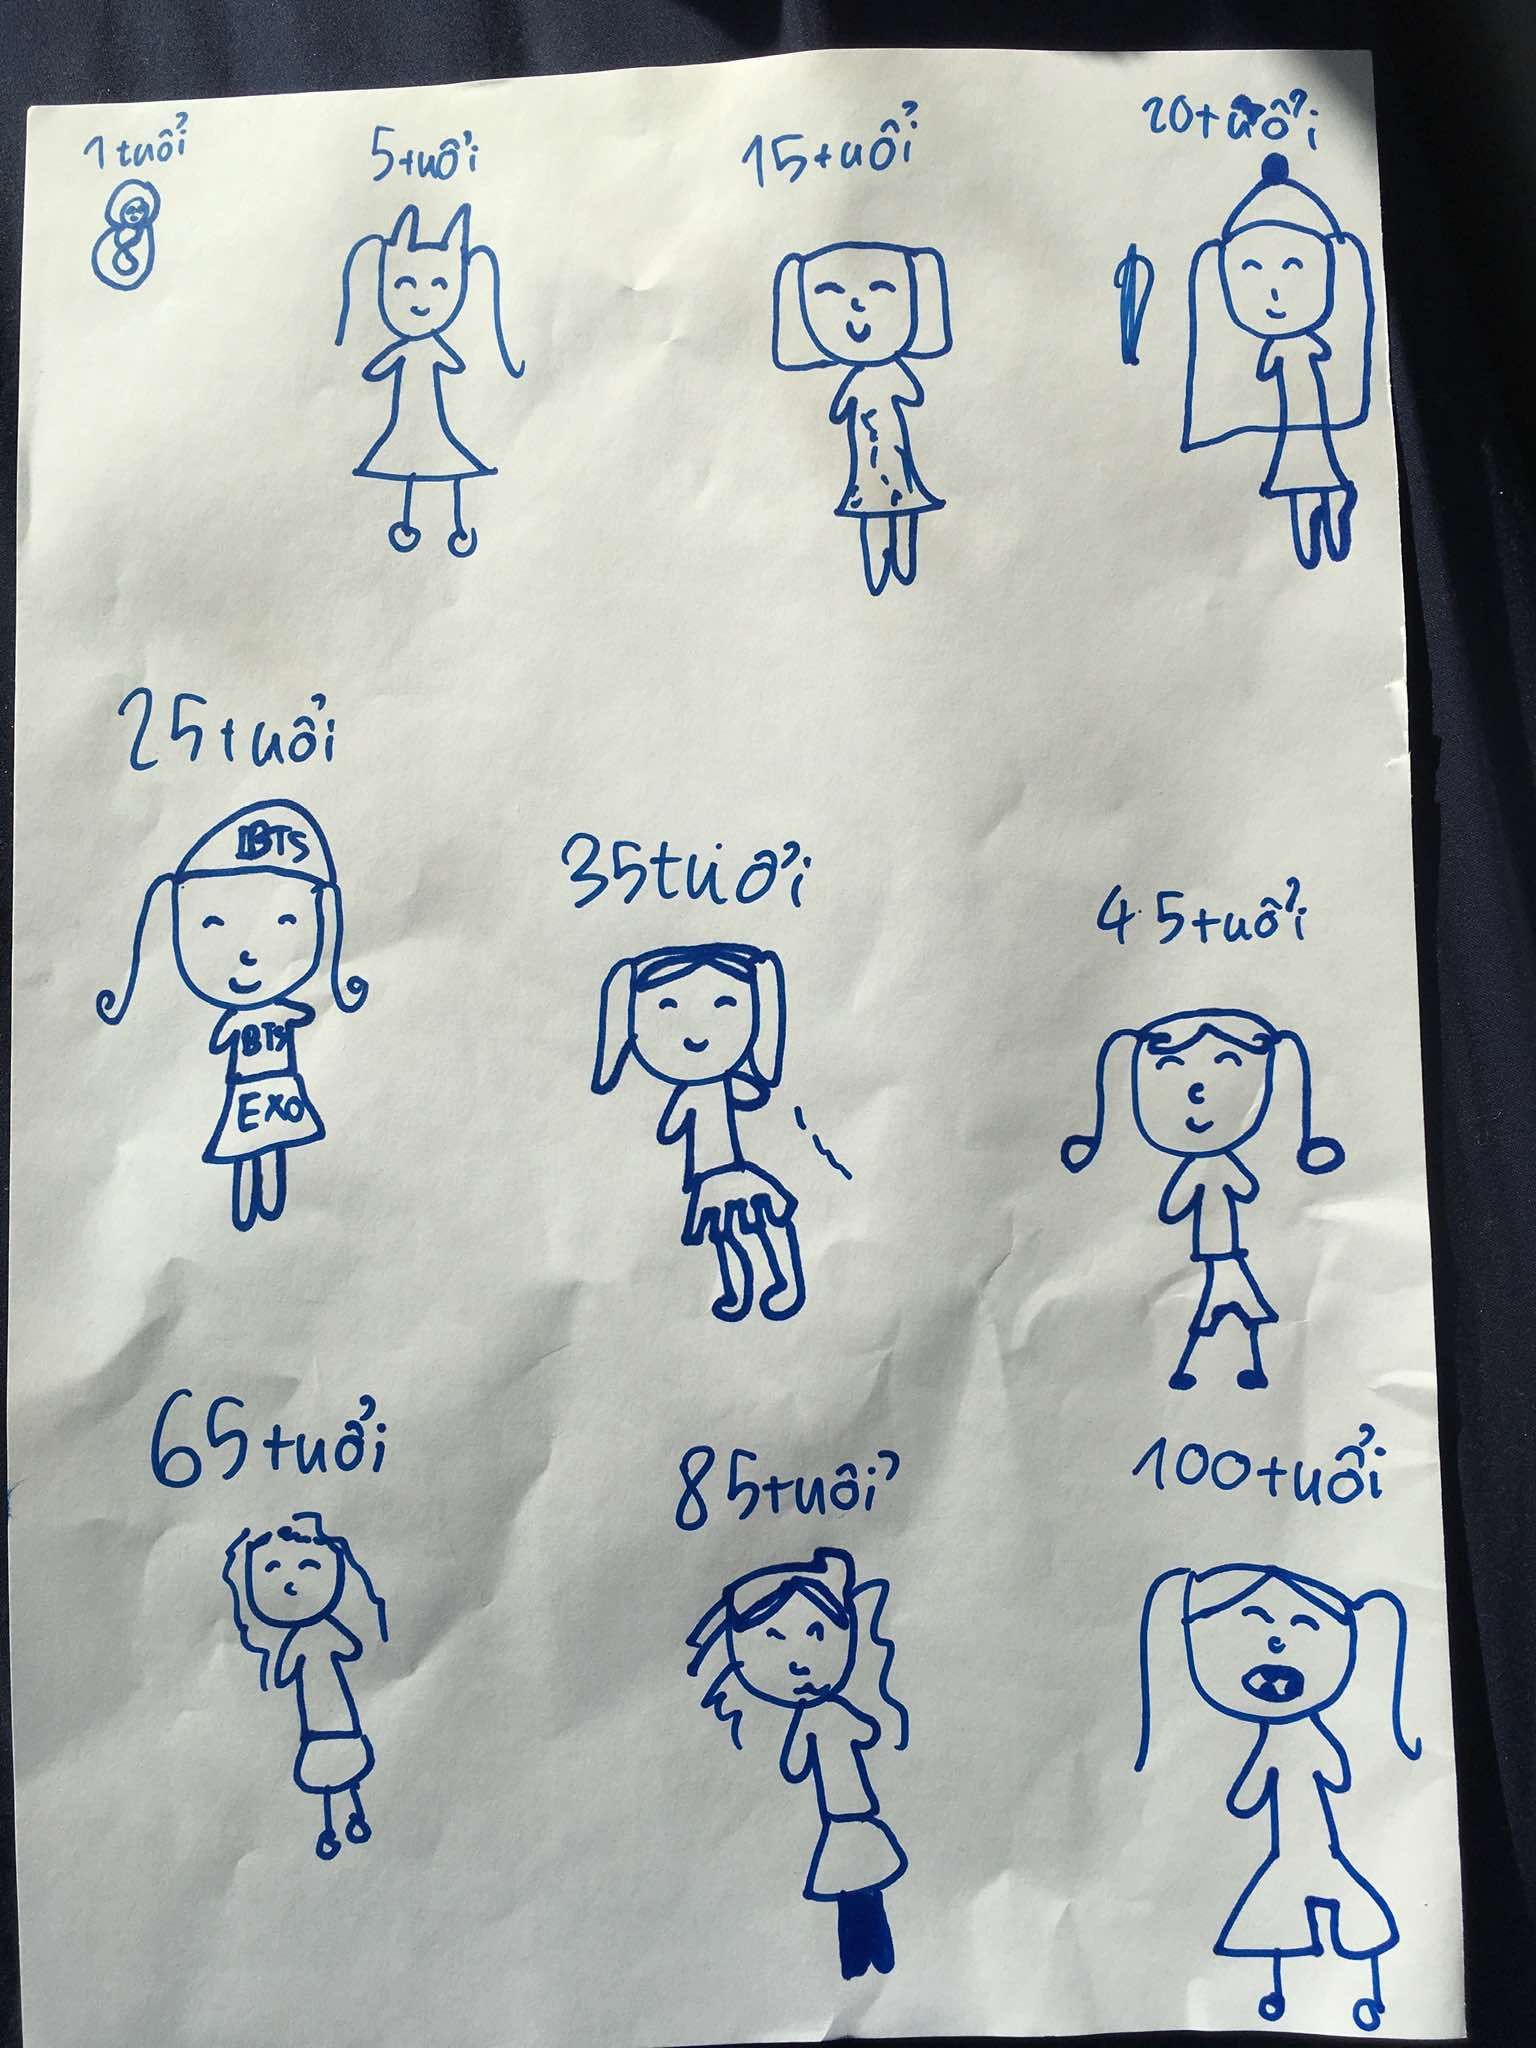 1 tuổi
5 tuổi
15 tuổi
20 tuổi
25 tuổi
BTS
BTS
EXO
35 tuơỉ
4.5 tuổi
65 tuổi
85 tuổi
100 tuổi